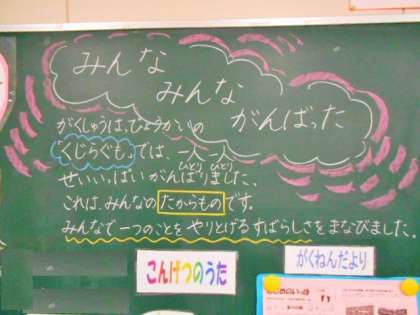 みんな
みんな
がんばった
がくしゅうはっぴょうかいの
「くじらぐも」では、一人一人
ひとり ひとり
せいいっぱいがんばりました。
これは、みんなの たからもの です。
みんなで一つのことを やりとげるすばらしさをまなびました。
こんげつのうた
がくねんだより